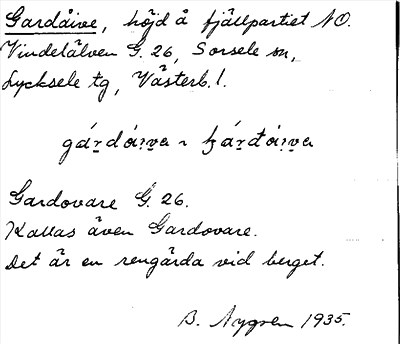 Gardåive, höjd å fjällpartiet NO.
Vindelälven G. 26, Sorsele sn,
Lycksele tg, Västerb. l.
Gardovare G. 26.
Kallas även Gardovare.
Det är en rengärda vid berget.
B. Nygren 1935.